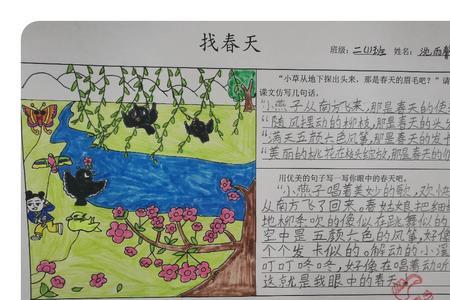 找春天
班级：二(1)班 姓名：池雨
“小草从地下探出头来，那是春天的眉毛吧？”请
课文仿写几句话。
“小燕子从南方飞来，那是春天的使
“随风摆动的柳枝，那是春天的头发
“满天五颜六色风筝，那是春天的发卡
“美丽的桃花在枝头绽放，那是春天的
用优美的句子写一写你眼中的春天。
“小燕子唱着美妙的歌，欢快
从南方飞了回来。春姑娘把细细
地柳条吹的像似在跳舞似的
空中是五颜六色的风筝，好像
个个发卡似的。解动的小溪
叮叮咚咚，好像在唱着动听
这就是我眼中的春天